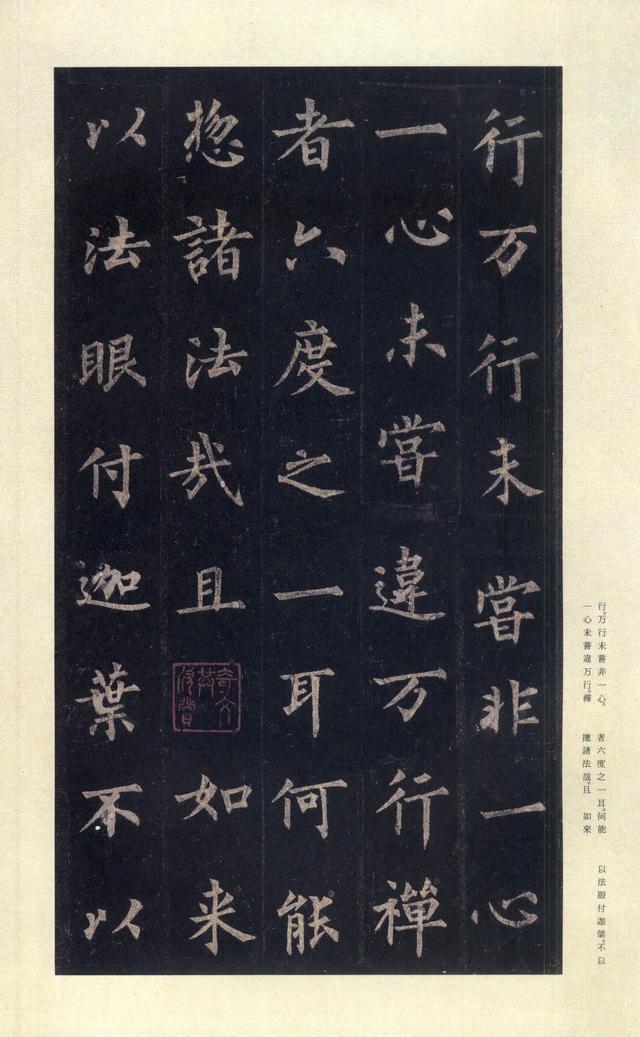 行万行未嘗非一心
一心未嘗違万行禅
者六度之一耳何能
揔諸法㢤且如来
以法眼付迦葉不以
行。万行未嘗非一心。
一心未嘗違万行。禪
者六度之一耳。何能
揔諸法哉。且 如來
以法眼付迦葉。不以